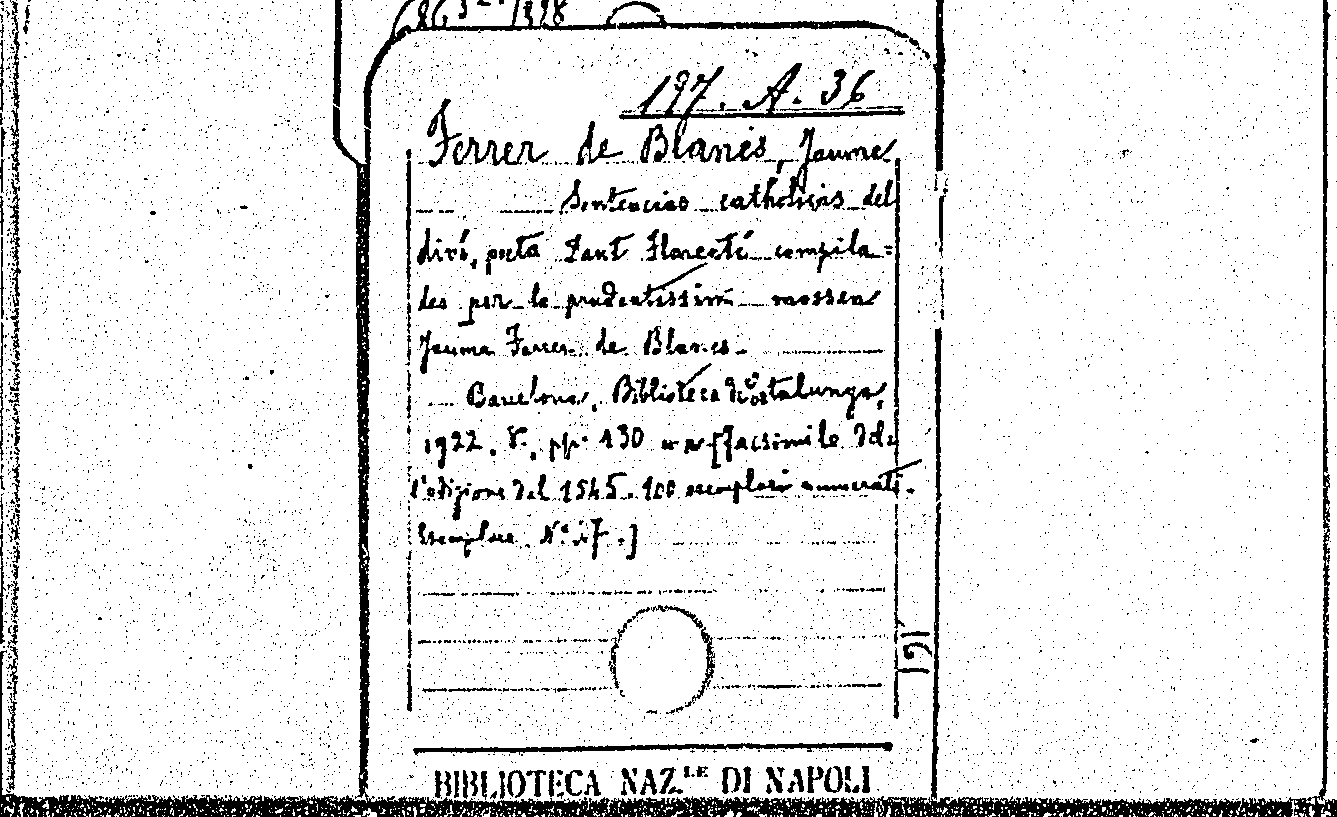 197. A. 36
Ferrer de Blanes, Jaume
Sentencias catholicas del
diví poeta Dant Florentí compila=
des per lo prudentissim mossen
Jaume Ferrer de Blanes.
Barcelona, Biblioteca de Catalunya,
1922. 8º. pp. 130 [facsimile del=
l'edizione del 1545. 100 esemplari numerati.
Esemplare Nº 7.]
191
BIBLIOTECA NAZ.LE DI NAPOLI